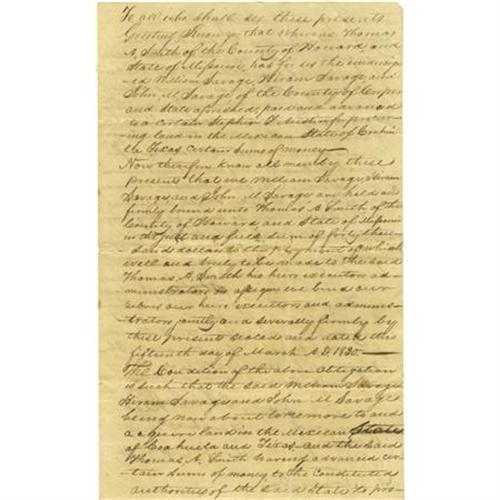 To all who shall see these presents
Greeting Know ye that whereas Thomas
A. Smith of the County of Howard, and
State of Missouri, has for us the undersign
ed William Savage, Hiram Savage, and
John M. Savage of the County of Cooper
and State aforesaid, paid and advanced
to a certain Stephen F. Austin for procur
ing land in the Mexican State of Coahui
la Texas certain sums of money
Now therefore know all men by these
presents that we William Savage, Hiram
Savage, and John M Savage are held and
firmly bound unto Thomas A. Smith of the
County of Howard and State of Missouri
in the and sum of forty three
dollars to the payment of which
well and truly to be made to the said
Thomas A. Smith his heirs executors ad-
ministrators or assigns we bind our
selves our heirs executors and adminis-
trators jointly and severally firmly by
these presents sealed and dated this
fifteenth day of March A.D. 1830.
The Condition of the above obligation
is such that the said William Savage
Hiram Savage and John M Savage
being now about to remove to and
acquire land in the Mexican State
of Coahuila and Texas and the said
Thomas A. Smith having advanced cer-
tain sums of money to the Constituted
authorities of the said State to pro-